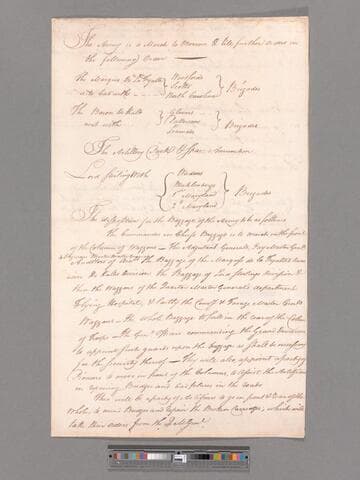 The Army is to March to Morrow & till further orders in
the following order
The Marquis De la Fyatte Woodfords
is to lead with Scotts Brigades
North Carolina
The Baron De Kalb Glovers
next with Pattersons Brigades
Learneds
The Artillery Park & Spare Ammunition
Lord Sterling With Wadons
Muhlenbergs Brigades
1st Maryland
2d Maryland
The disposition for the Baggage of the Army to be as follows
the Commander in Chiefs Baggage is to march in the front
of the Column of Waggons The Adjutant Generals, Pay Master Genl
the Baggage of the Marquis De la Fayette's
De Kalbs Division the Baggage of Lord Sterlings Division &
then the Waggons of the Quarter Master Generals department
Flying Hospital, & lastly the Comy & Forage Master Genls
Waggons the Whole Baggage to fall in the rear of the Column
of Troops The Genl Officers commanding the Grand Divisions
to appoint such guards upon the Baggage as shall be necessary
for the security thereof They will also appoint a party of
Pioneers to move in front of the Columns, to assist the Artificers
in repairing Bridges and bad places in the roads
There will be a party of Artificers to go in front & rear of the
Whole to mend Bridges and repair the Broken Carriages, which will
take their orders from the Qr Mr Genl